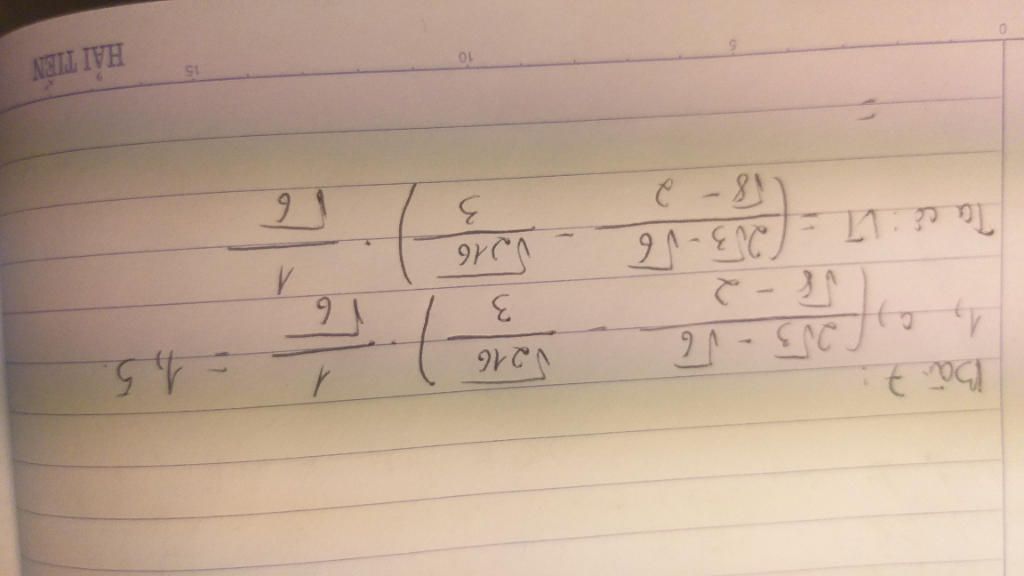 Bài 7:
1, a, ( (2√3 - √6)/(√8 - 2) - √216/3 ) . 1/√6 = -1,5.
Ta có: VT = ( (2√3 - √6)/(√8 - 2) - √216/3 ) . 1/√6
=
0 5 10 15
HẢI TIẾN